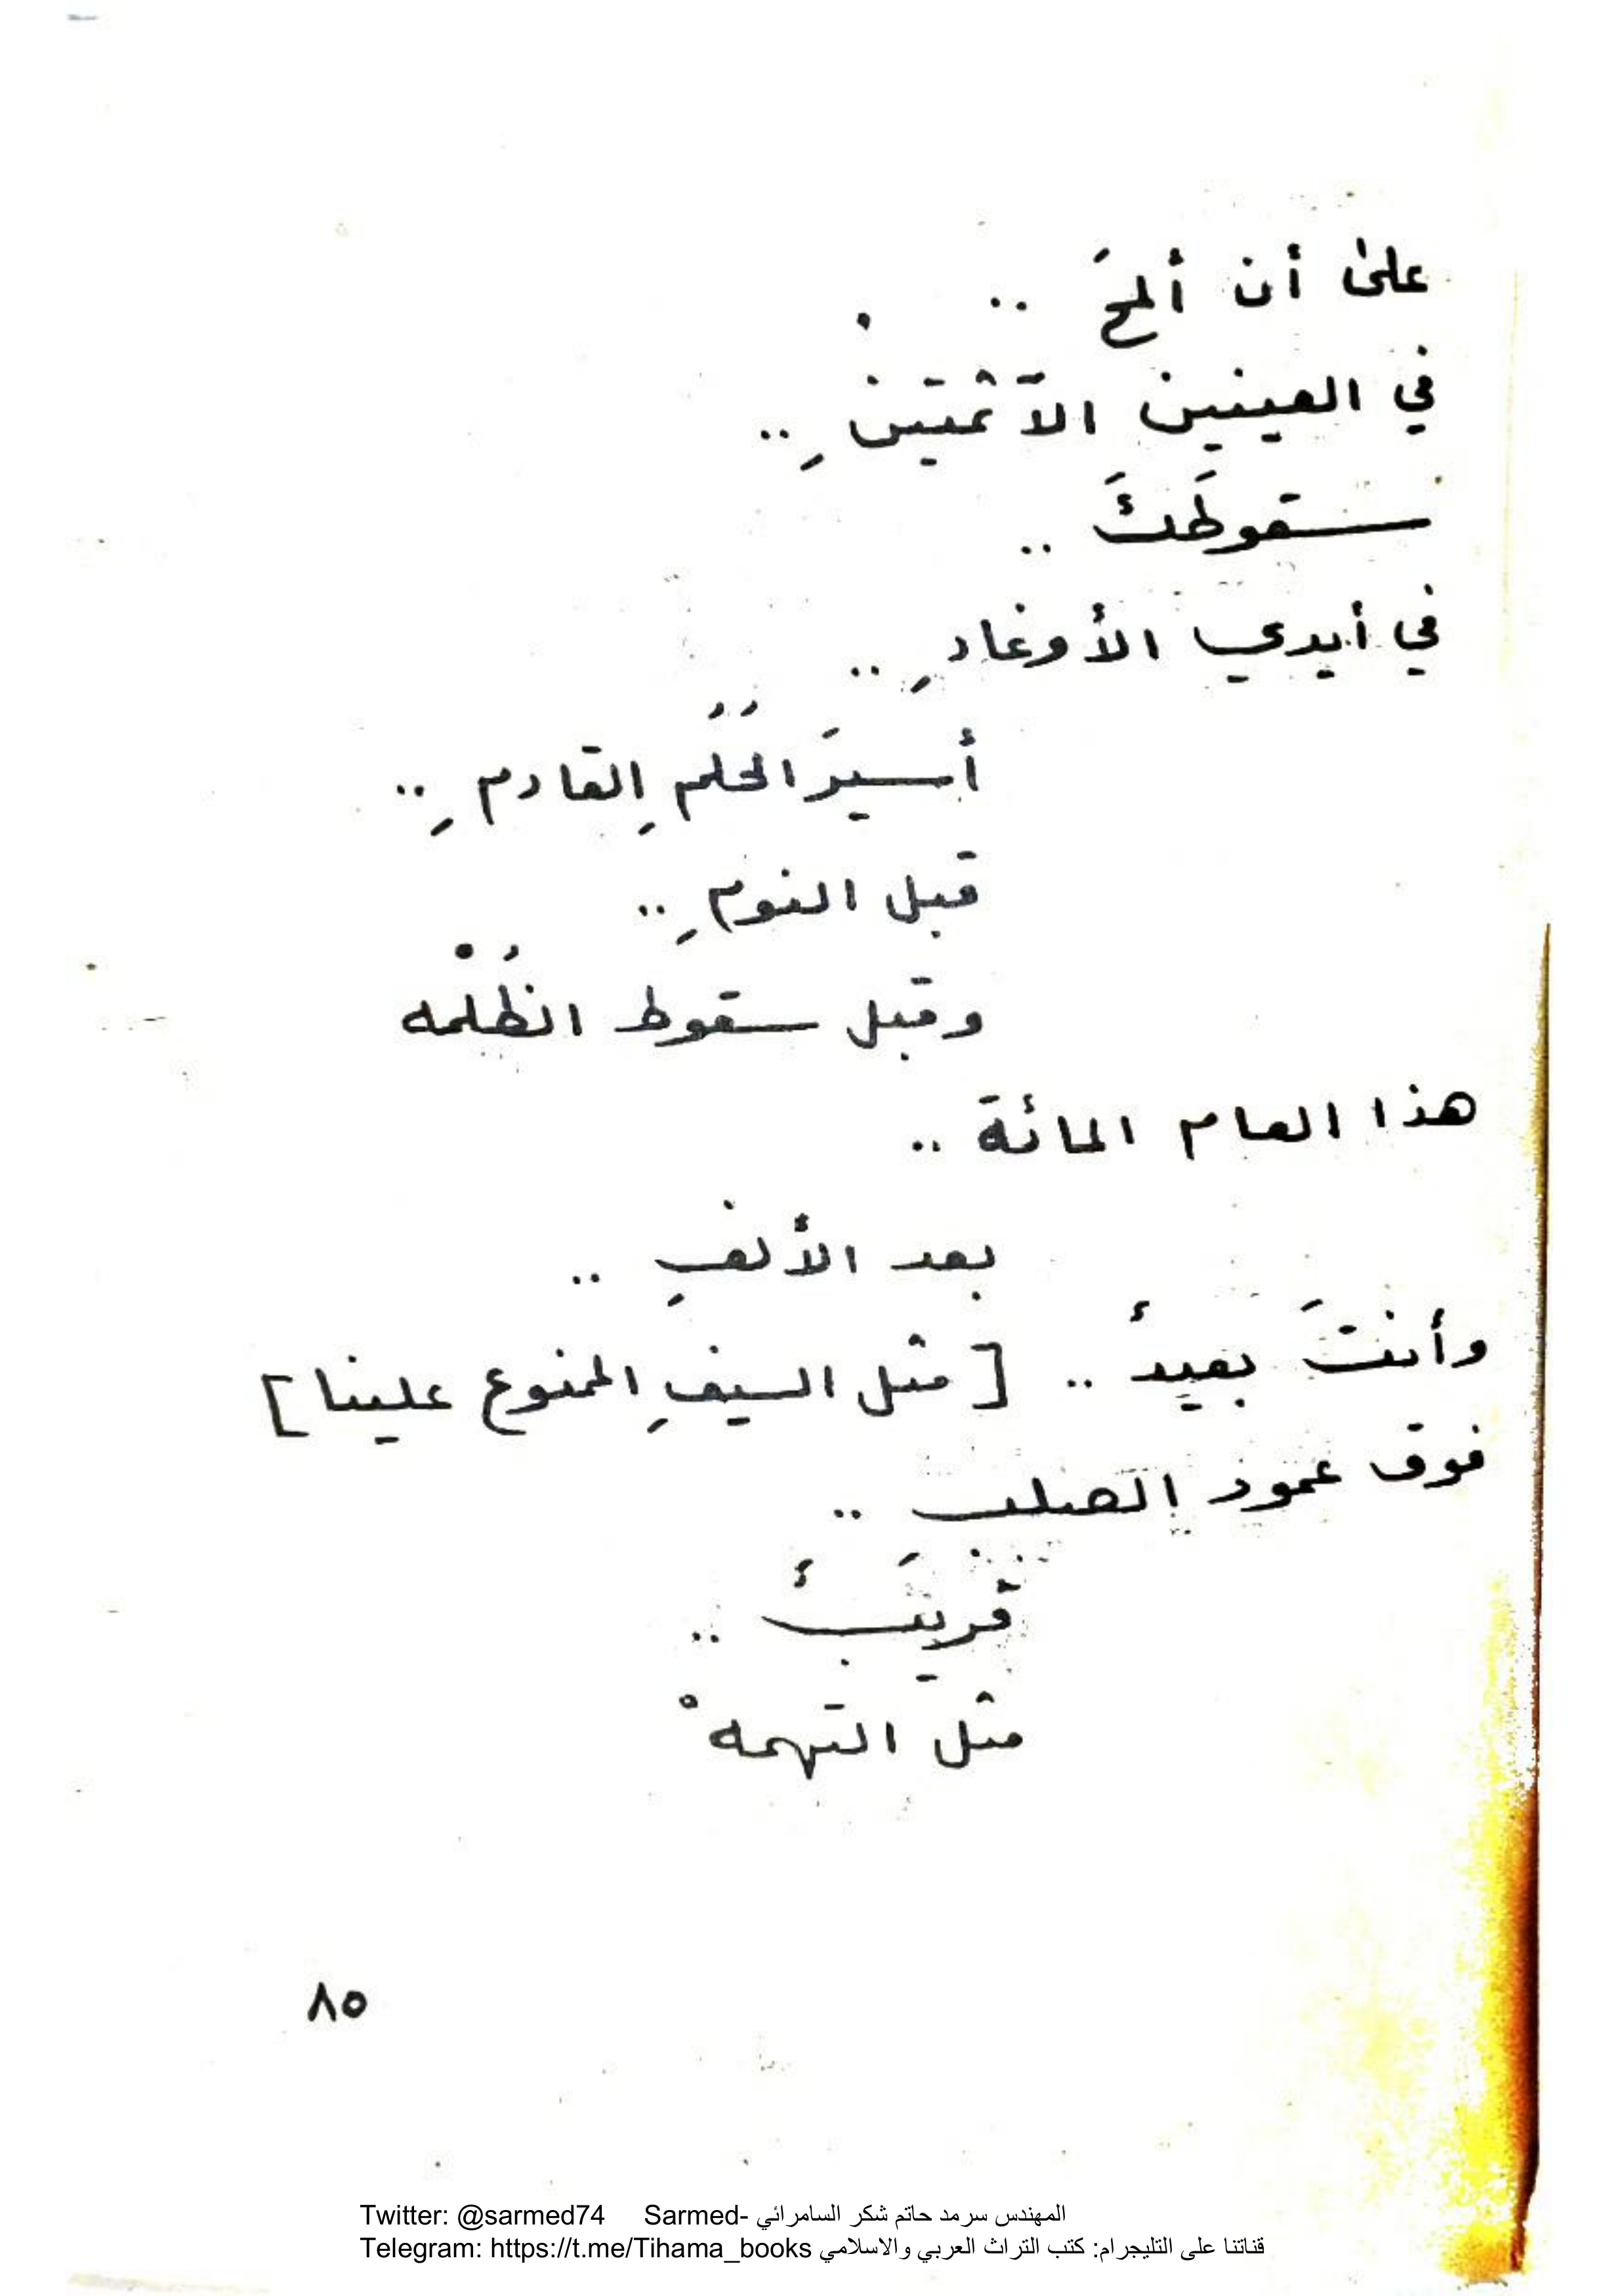 على أن ألمحَ ..
في العينين الآثمتينِ ..
سقوطَكَ ..
في أيدي الأوغادِ ..
أسيرَ الحُلُمِ القادمِ ..
قبل النومِ ..
وقبل سقوط الظُلْمه
هذا العام المائة ..
بعد الألفِ ..
وأنتَ بعيدٌ .. [ مثل السيفِ الممنوع علينا ]
فوق عمود الصلب ..
قريبٌ ..
مثل التهمهْ
٨٥
Twitter: @sarmed74 Sarmed- المهندس سرمد حاتم شكر السامرائي
Telegram: https://t.me/Tihama_books قناتنا على التليجرام: كتب التراث العربي والاسلامي